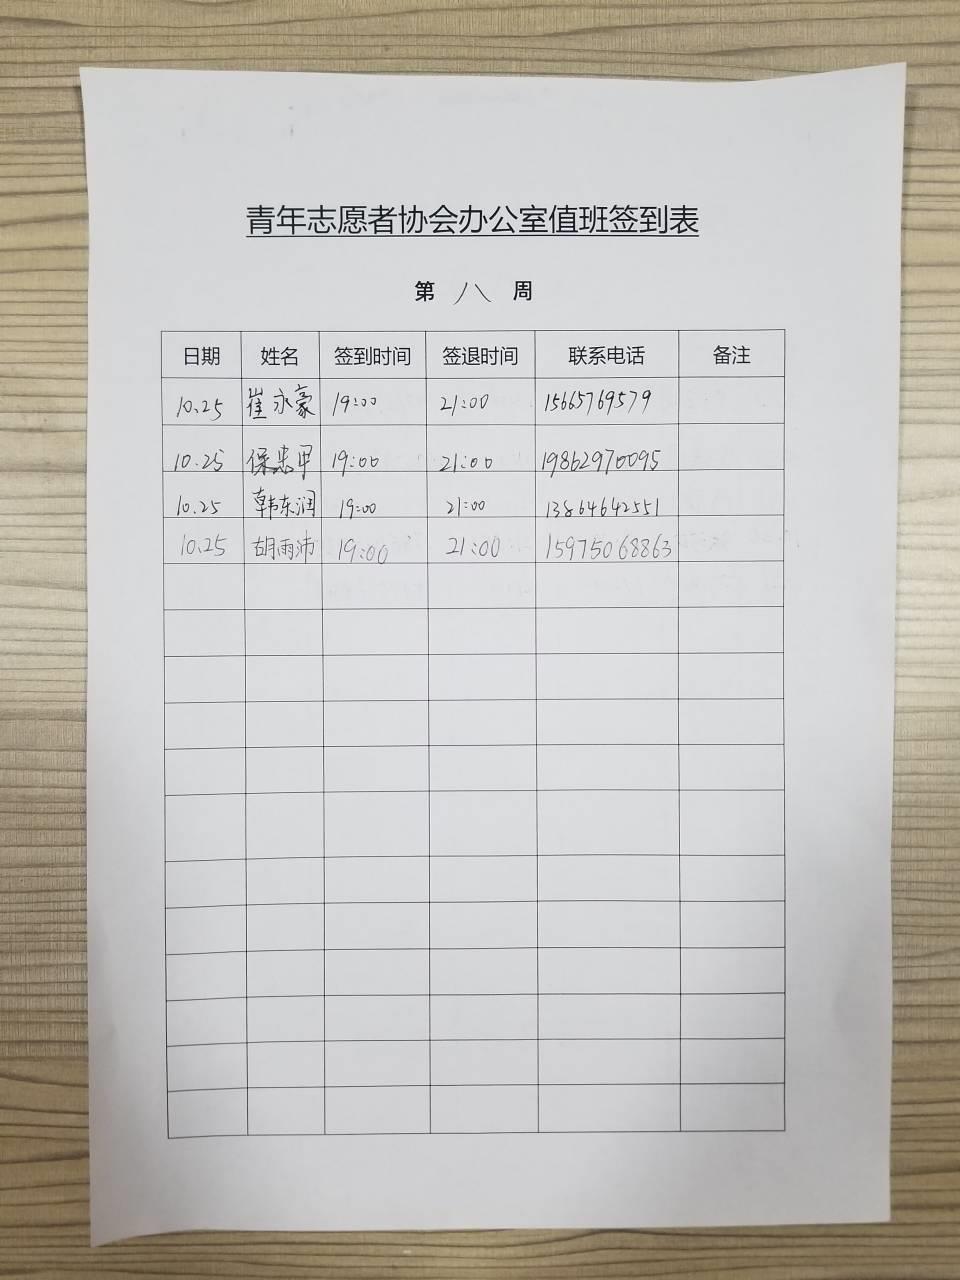 青年志愿者协会办公室值班签到表
第 八 周
日期 姓名 签到时间 签退时间 联系电话 备注
10.25 崔永豪 19:00 21:00 15665769579
10.25 保忠甲 19:00 21:00 19862970095
10.25 韩东润 19:00 21:00 13864642551
10.25 胡雨沛 19:00 21:00 15975068863